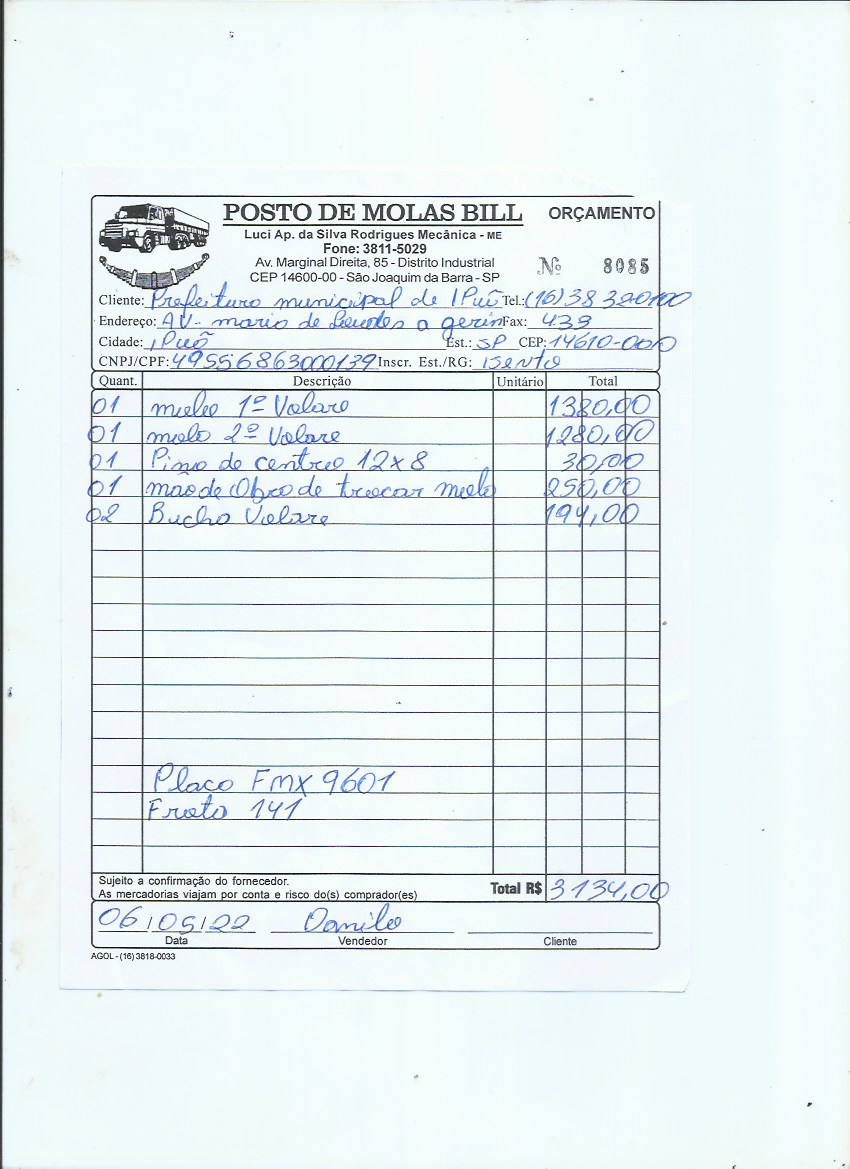 POSTO DE MOLAS BILL ORÇAMENTO
Luci Ap. da Silva Rodrigues Mecânica - ME
Fone: 3811-5029
Av. Marginal Direita, 85 - Distrito Industrial
CEP 14600-00 - São Joaquim da Barra - SP
Nº 8085
Cliente: Prefeitura municipal de IPuã Tel.: (16) 38 320100
Endereço: AV. maria de a gerin Fax: 439
Cidade: IPuã Est.: SP CEP: 14610-000
CNPJ/CPF: 49556863000139 Inscr. Est./RG: isento
Quant. Descrição Unitário Total
01 mola 1º Volare 1380,00
01 mola 2º Volare 1280,00
01 Pino de centro 12x8 30,00
01 mão de obra de trocar mola 250,00
02 Bucha Volare 194,00
Placa FMX 9601
Frota 141
Sujeito a confirmação do fornecedor.
As mercadorias viajam por conta e risco do(s) comprador(es)
Total R$ 3134,00
06/05/22 Danilo
Data Vendedor Cliente
AGOL - (16) 3818-0033